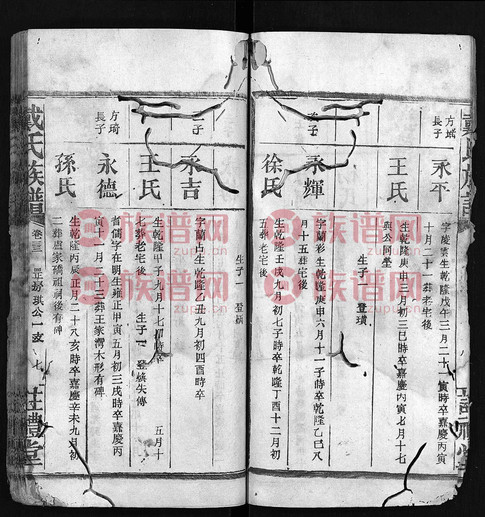 戴氏族譜
方城
長子
永平
字慶雲生乾隆戊午三月二十一寅時卒嘉慶丙寅
十月二十二葬老宅後
王氏
生乾隆庚申三月初三巳時卒嘉慶丙寅七月十七
與公同塋
生子一 登璜
次子
永輝
字蘭彩生乾隆庚申六月十一子時卒乾隆乙巳八
月十五葬宅後
徐氏
生乾隆壬戌九月初七子時卒乾隆丁酉十二月初
五葬老宅後
生子一 登
三子
永吉
字蘭占生乾隆乙丑九月初四酉時卒
王氏
生乾隆甲子九月十七 時卒 五月十
七葬老宅後
生子一 登 失傳
方琦
長子
永德
譜儒字在朝生雍正甲寅五月初三戌時卒嘉慶丙
寅十一月二十三葬王家灣木形有碑
孫氏
生乾隆丙辰正月二十八亥時卒嘉慶辛未九月初
二葬盧家橋祖祠後有碑
戴氏族譜
卷三 琪公一支 七
注禮堂
族谱网
zupu.cn